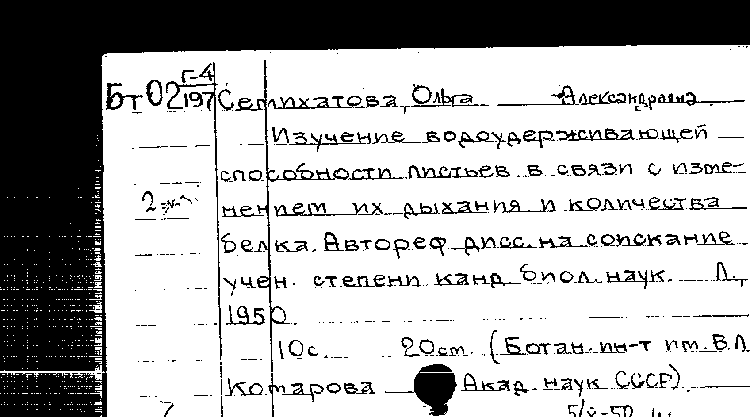 Бт02 Г-4
197
Семихатова, Ольга Александровна.
Изучение водоудерживающей
способности листьев в связи с изме-
нением их дыхания и количества
белка. Автореф дисс. на соискание
учен. степени канд биол. наук. Л.,
1950.
10с. 20см. (Ботан. ин-т им. В.Л
Комарова Акад. наук СССР).
2 экз.